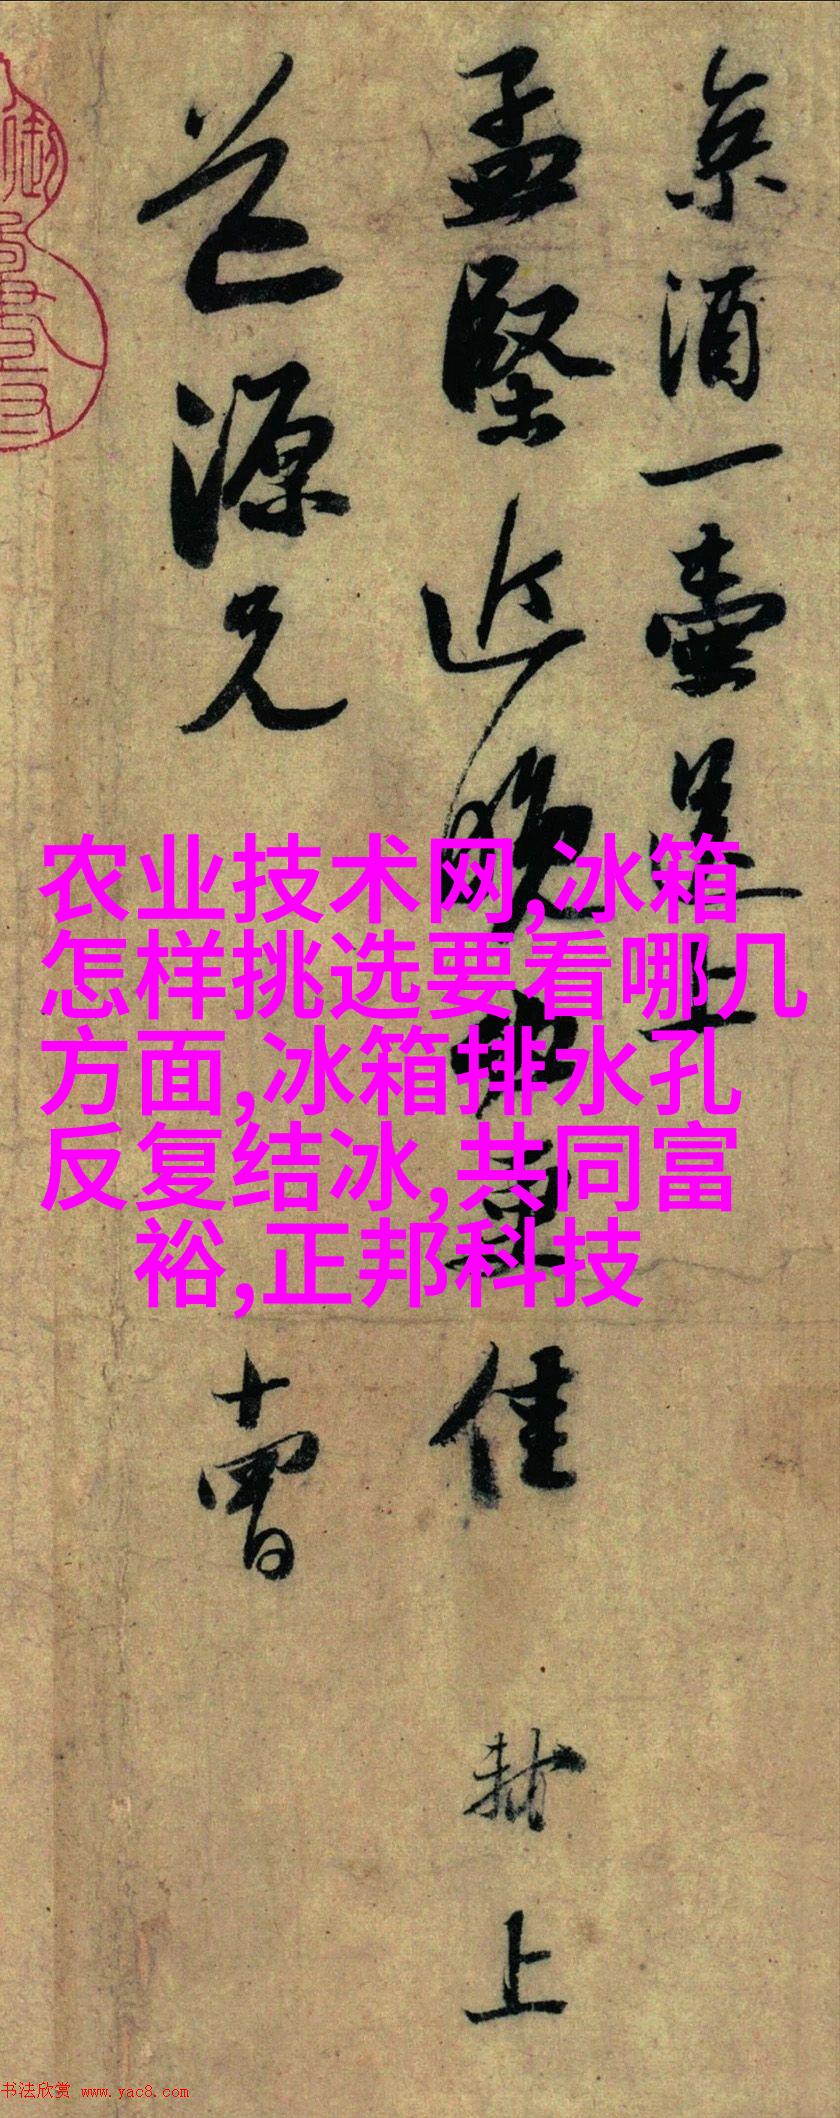 京酒一壺送上
孟堅近晚必更佳 軾上
道源兄 十四日
农业技术网,冰箱
怎样挑选要看哪几
方面,冰箱排水孔
反复结冰,共同富
裕,正邦科技
书法欣赏 www.yac8.com